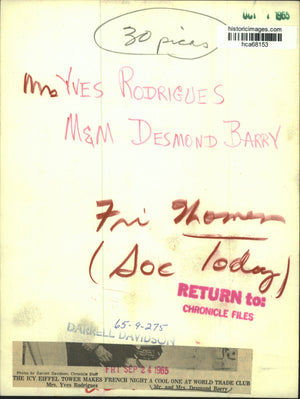 OCT 1 1965
historicimages.com
hca68153
30 picas
Mrs YVES RODRIGUES
M&M DESMOND BARRY
Fri Women
(Soc Today)
RETURN to:
CHRONICLE FILES
65-9-275
DARRELL DAVIDSON
FRI SEP 24 1965
Photos by Darrell Davidson, Chronicle Staff
THE ICY EIFFEL TOWER MAKES FRENCH NIGHT A COOL ONE AT WORLD TRADE CLUB
Mrs. Yves Rodrigues Mr. and Mrs. Desmond Barry